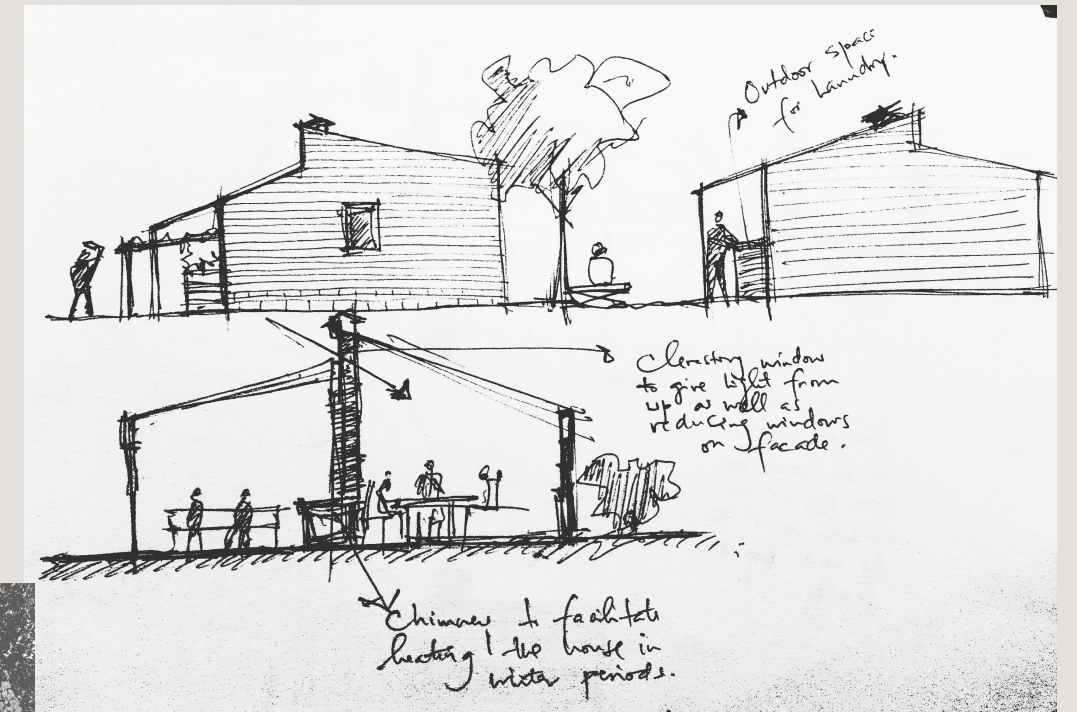 Outdoor space
for Laundry.
Clerestory window
to give light from
up as well as
reducing windows
on facade.
Chimney to facilitate
heating the house in
winter periods.